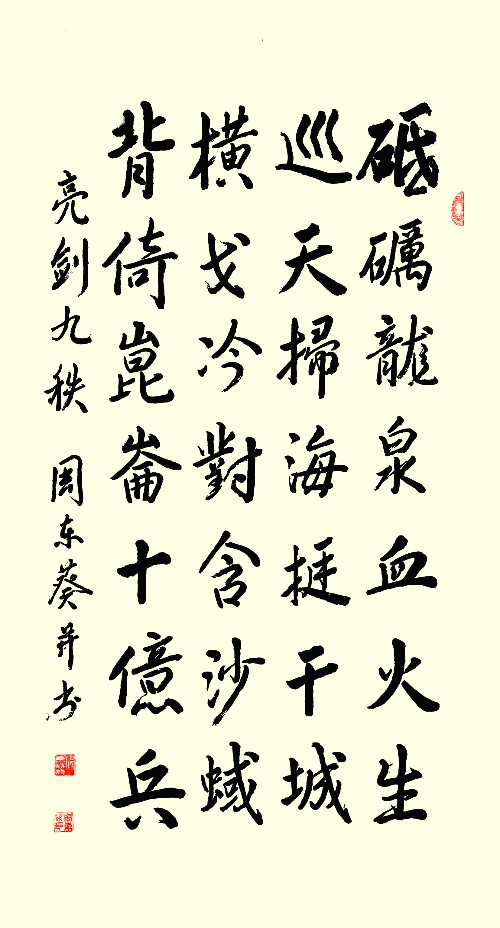 砥礪龍泉血火生
巡天掃海挺干城
橫戈冷對含沙蜮
背倚崑崙十億兵
亮劍九秩 周东葵并书